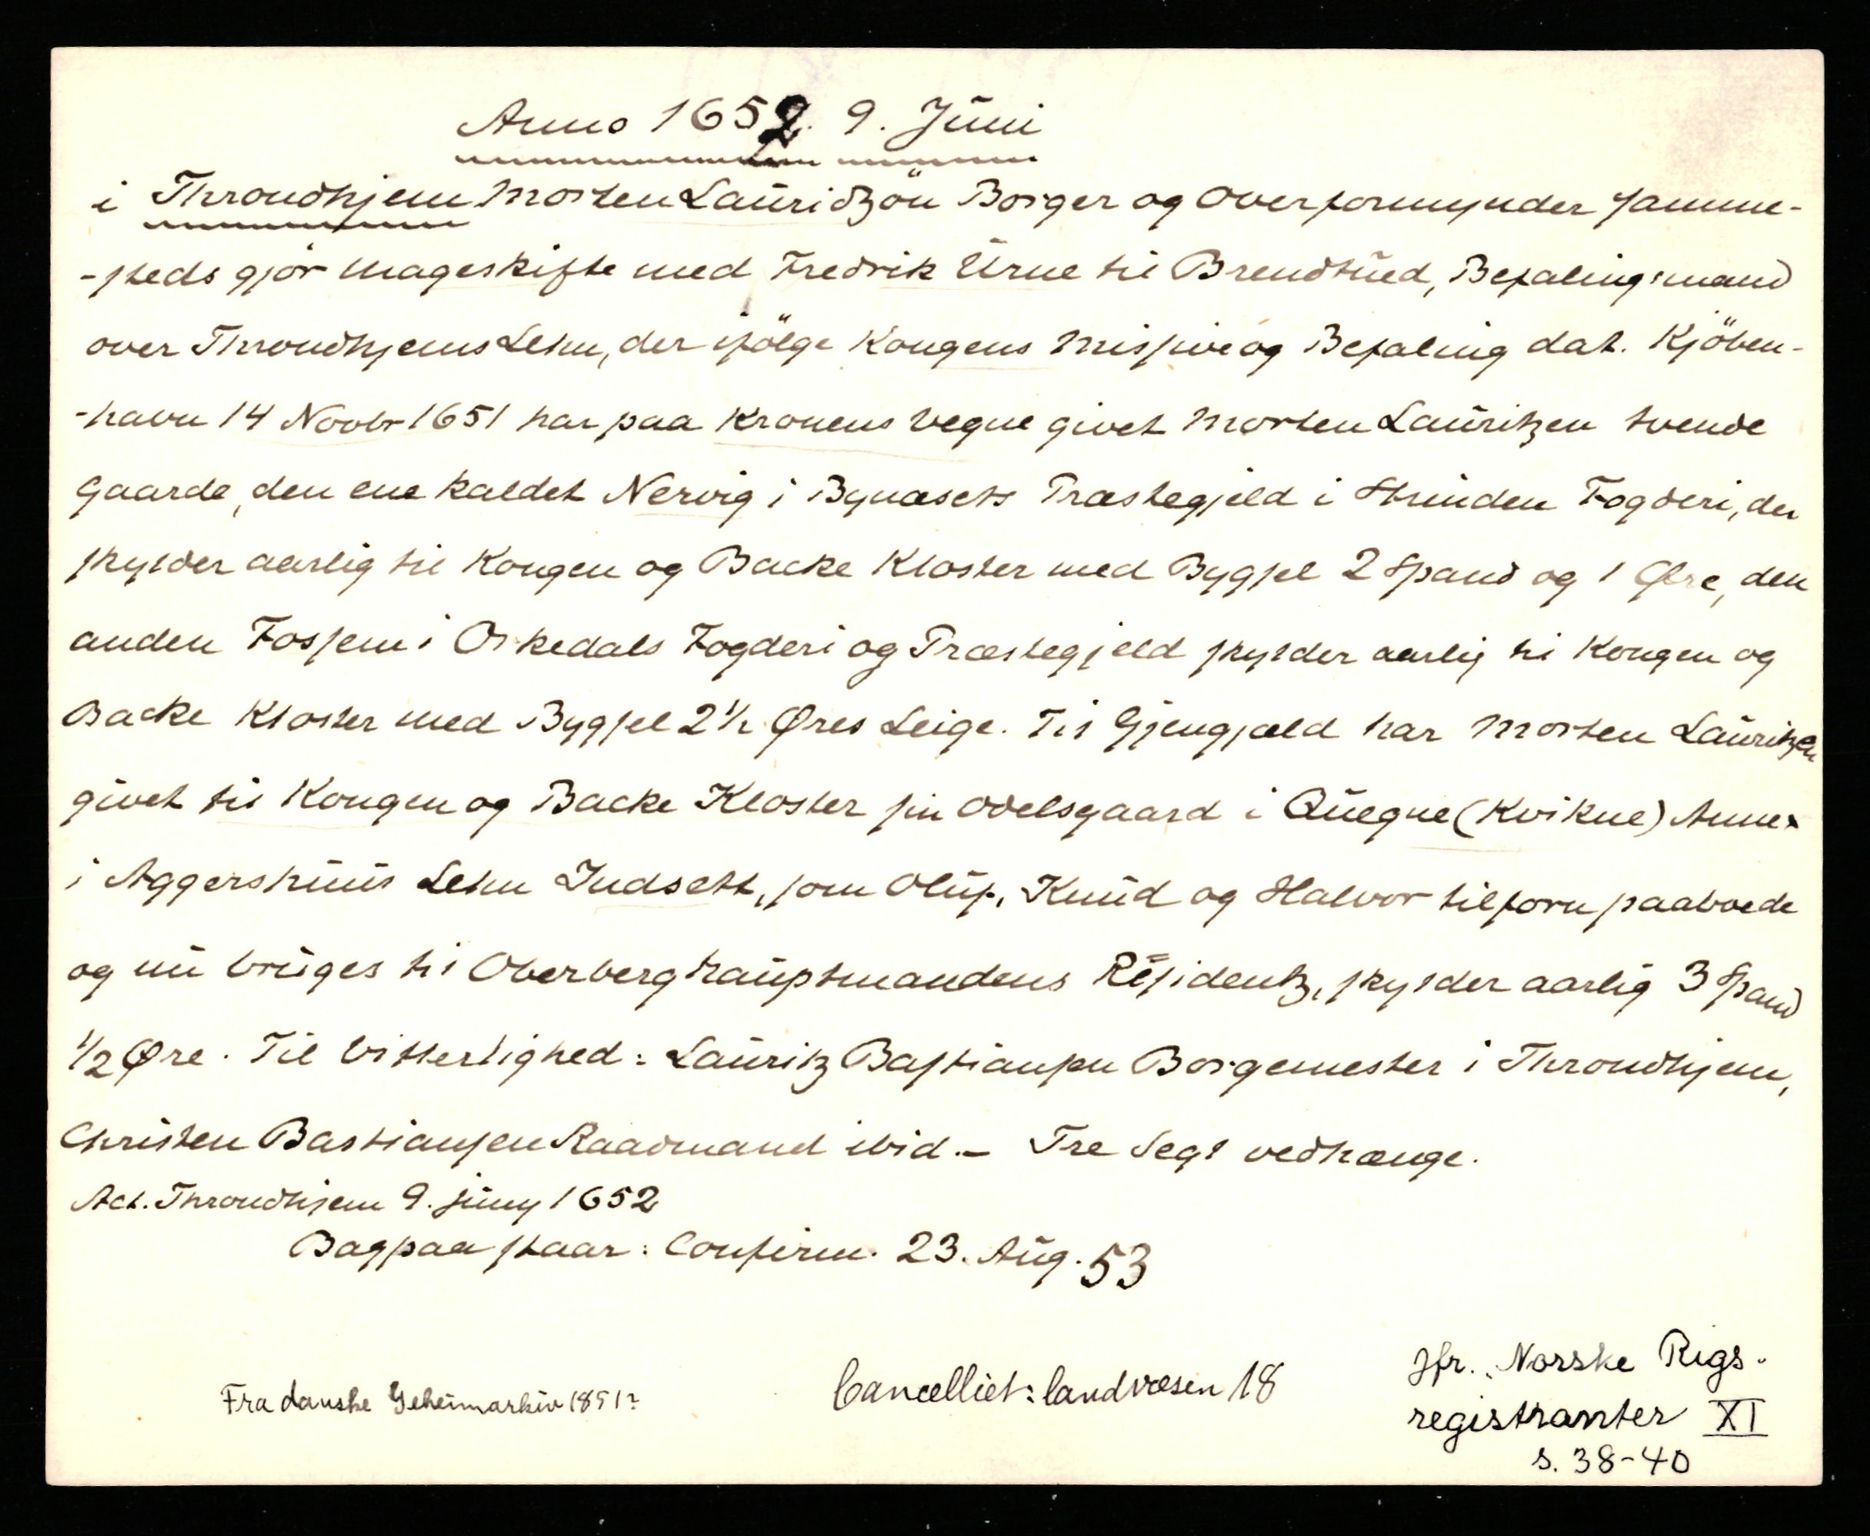 Anno 1652. 9. Juni
i Throndhjem Morten Lauridzön Borger og Overformynder samme-
-steds gjör Mageskifte med Fredrik Urne til Brendtued, Befalingsmand
over Throndhjems Lehn, der ifölge Kongens Missive og Befaling dat. Kjöben-
-havn 14 Novbr 1651 har paa Kronens Vegne givet Morten Lauritzen tvende
Gaarde, den ene kaldet Nervig i Bynæsets Præstegjeld i Strinden Fogderi, der
skylder aarlig til Kongen og Backe Kloster med Bygsel 2 Spand og 1 Øre, den
anden Fossem i Orkedals Fogderi og Præstegjeld skylder aarlig til Kongen og
Backe Kloster med Bygsel 2 1/2 Øres Leige. Til Gjengjæld har Morten Lauritzen
givet til Kongen og Backe Kloster sin Odelsgaard i Quegne (Kvikne) Annex
i Aggershuus Lehn Indsett, som Oluf, Knud og Halvor tilforn paaboede
og nu bruges til Oberberghauptmandens Residentz, skylder aarlig 3 Spand
1/2 Øre. Til Vitterlighed: Lauritz Bastiansen Borgemester i Throndhjem,
Christen Bastiansen Raadmand ibid. - Tre Segl vedhænge.
Act. Throndhjem 9. juny 1652
Bagpaa staar: Confirm. 23. Aug. 53
Fra danske Geheimarkiv 1851?
Cancelliet: landvæsen 18
Jfr. Norske Rigs-
registranter XI
s. 38-40